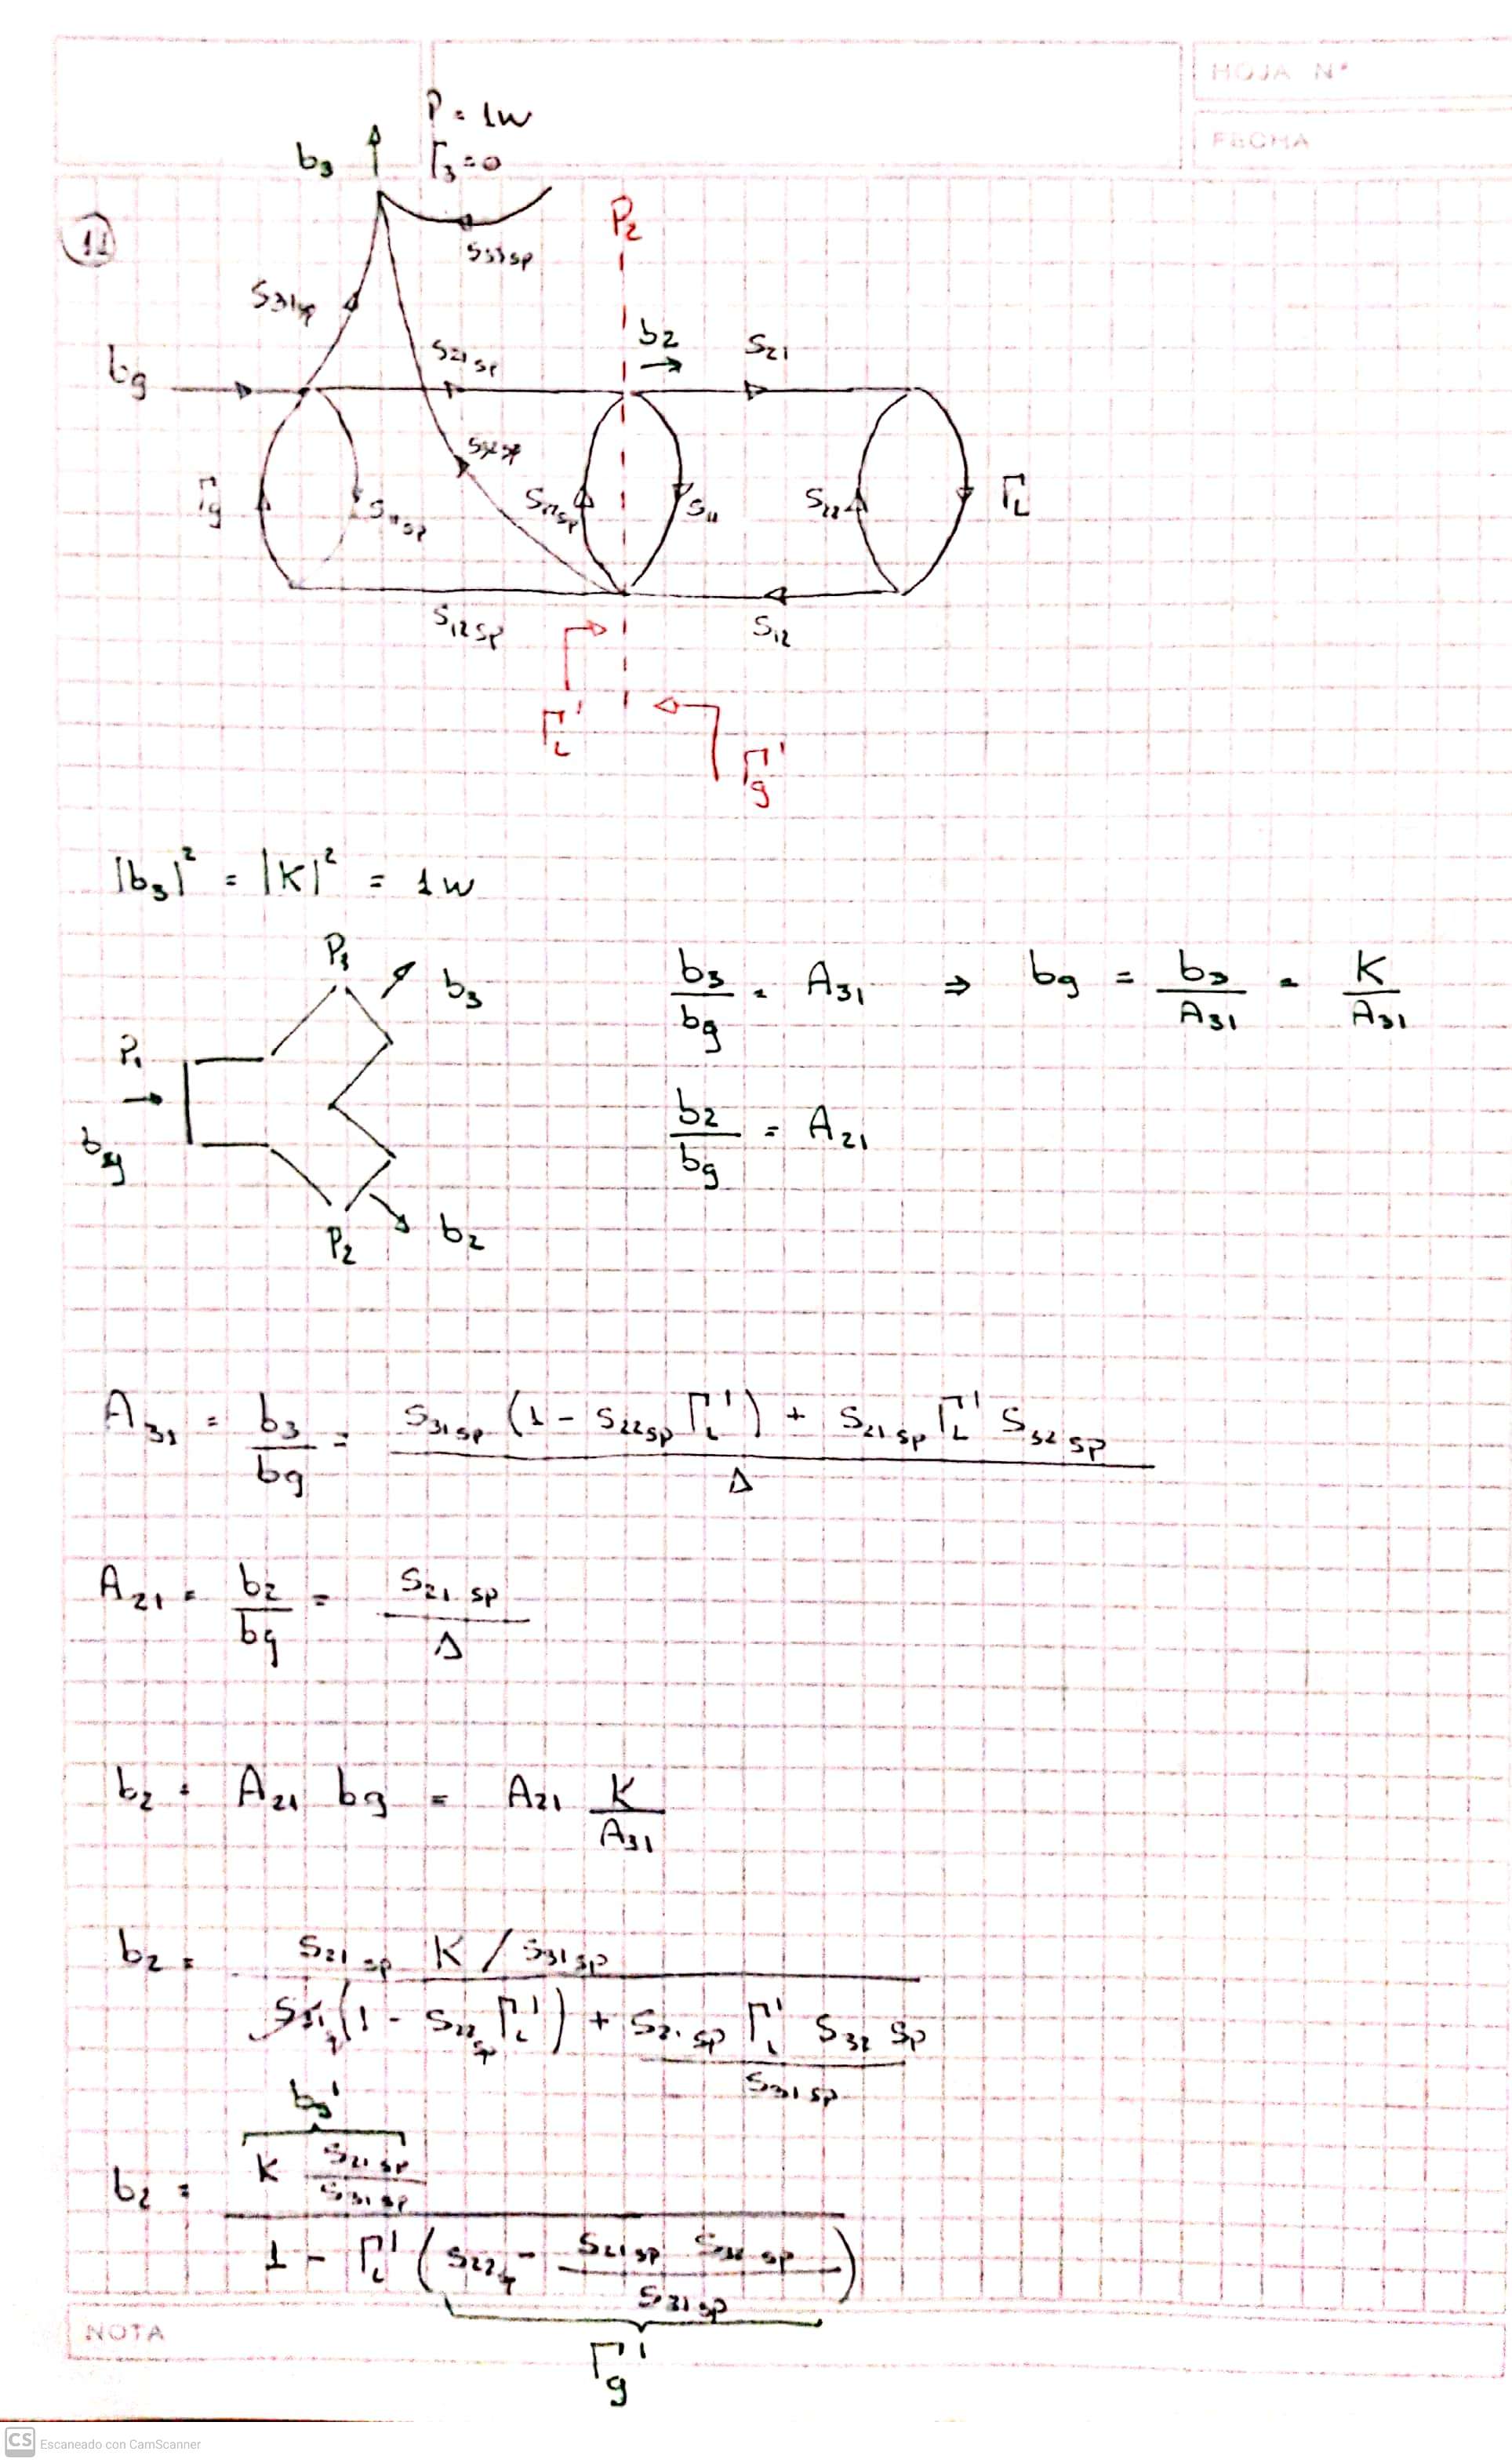 HOJA N°
FECHA
P = 1W
b₃ Γ₃ = 0
11
P₂
S₃₃sp
S₃₁sp
b₂
S₂₁sp
S₂₁
bg
S₃₂sp
Γg
S₁₁sp
S₂₂sp
S₁₁
S₂₂
Γ_L
S₁₂sp
S₁₂
Γ_L'
Γg'
|b₃|² = |K|² = 1W
P₃
b₃
b₃/bg = A₃₁ ⇒ bg = b₃/A₃₁ = K/A₃₁
P₁
bg
b₂/bg = A₂₁
P₂
b₂
A₃₁ = b₃/bg = (S₃₁sp (1 - S₂₂sp Γ_L') + S₂₁sp Γ_L' S₃₂sp) / Δ
A₂₁ = b₂/bg = S₂₁sp / Δ
b₂ = A₂₁ bg = A₂₁ K/A₃₁
b₂ = (S₂₁sp K / S₃₁sp) / (S₃₁sp (1 - S₂₂sp Γ_L') + S₂₁sp Γ_L' S₃₂sp / S₃₁sp)
bg'
b₂ = (K S₂₁sp/S₃₁sp) / (1 - Γ_L' (S₂₂sp - S₂₁sp S₃₂sp / S₃₁sp))
Γg'
NOTA
CS Escaneado con CamScanner